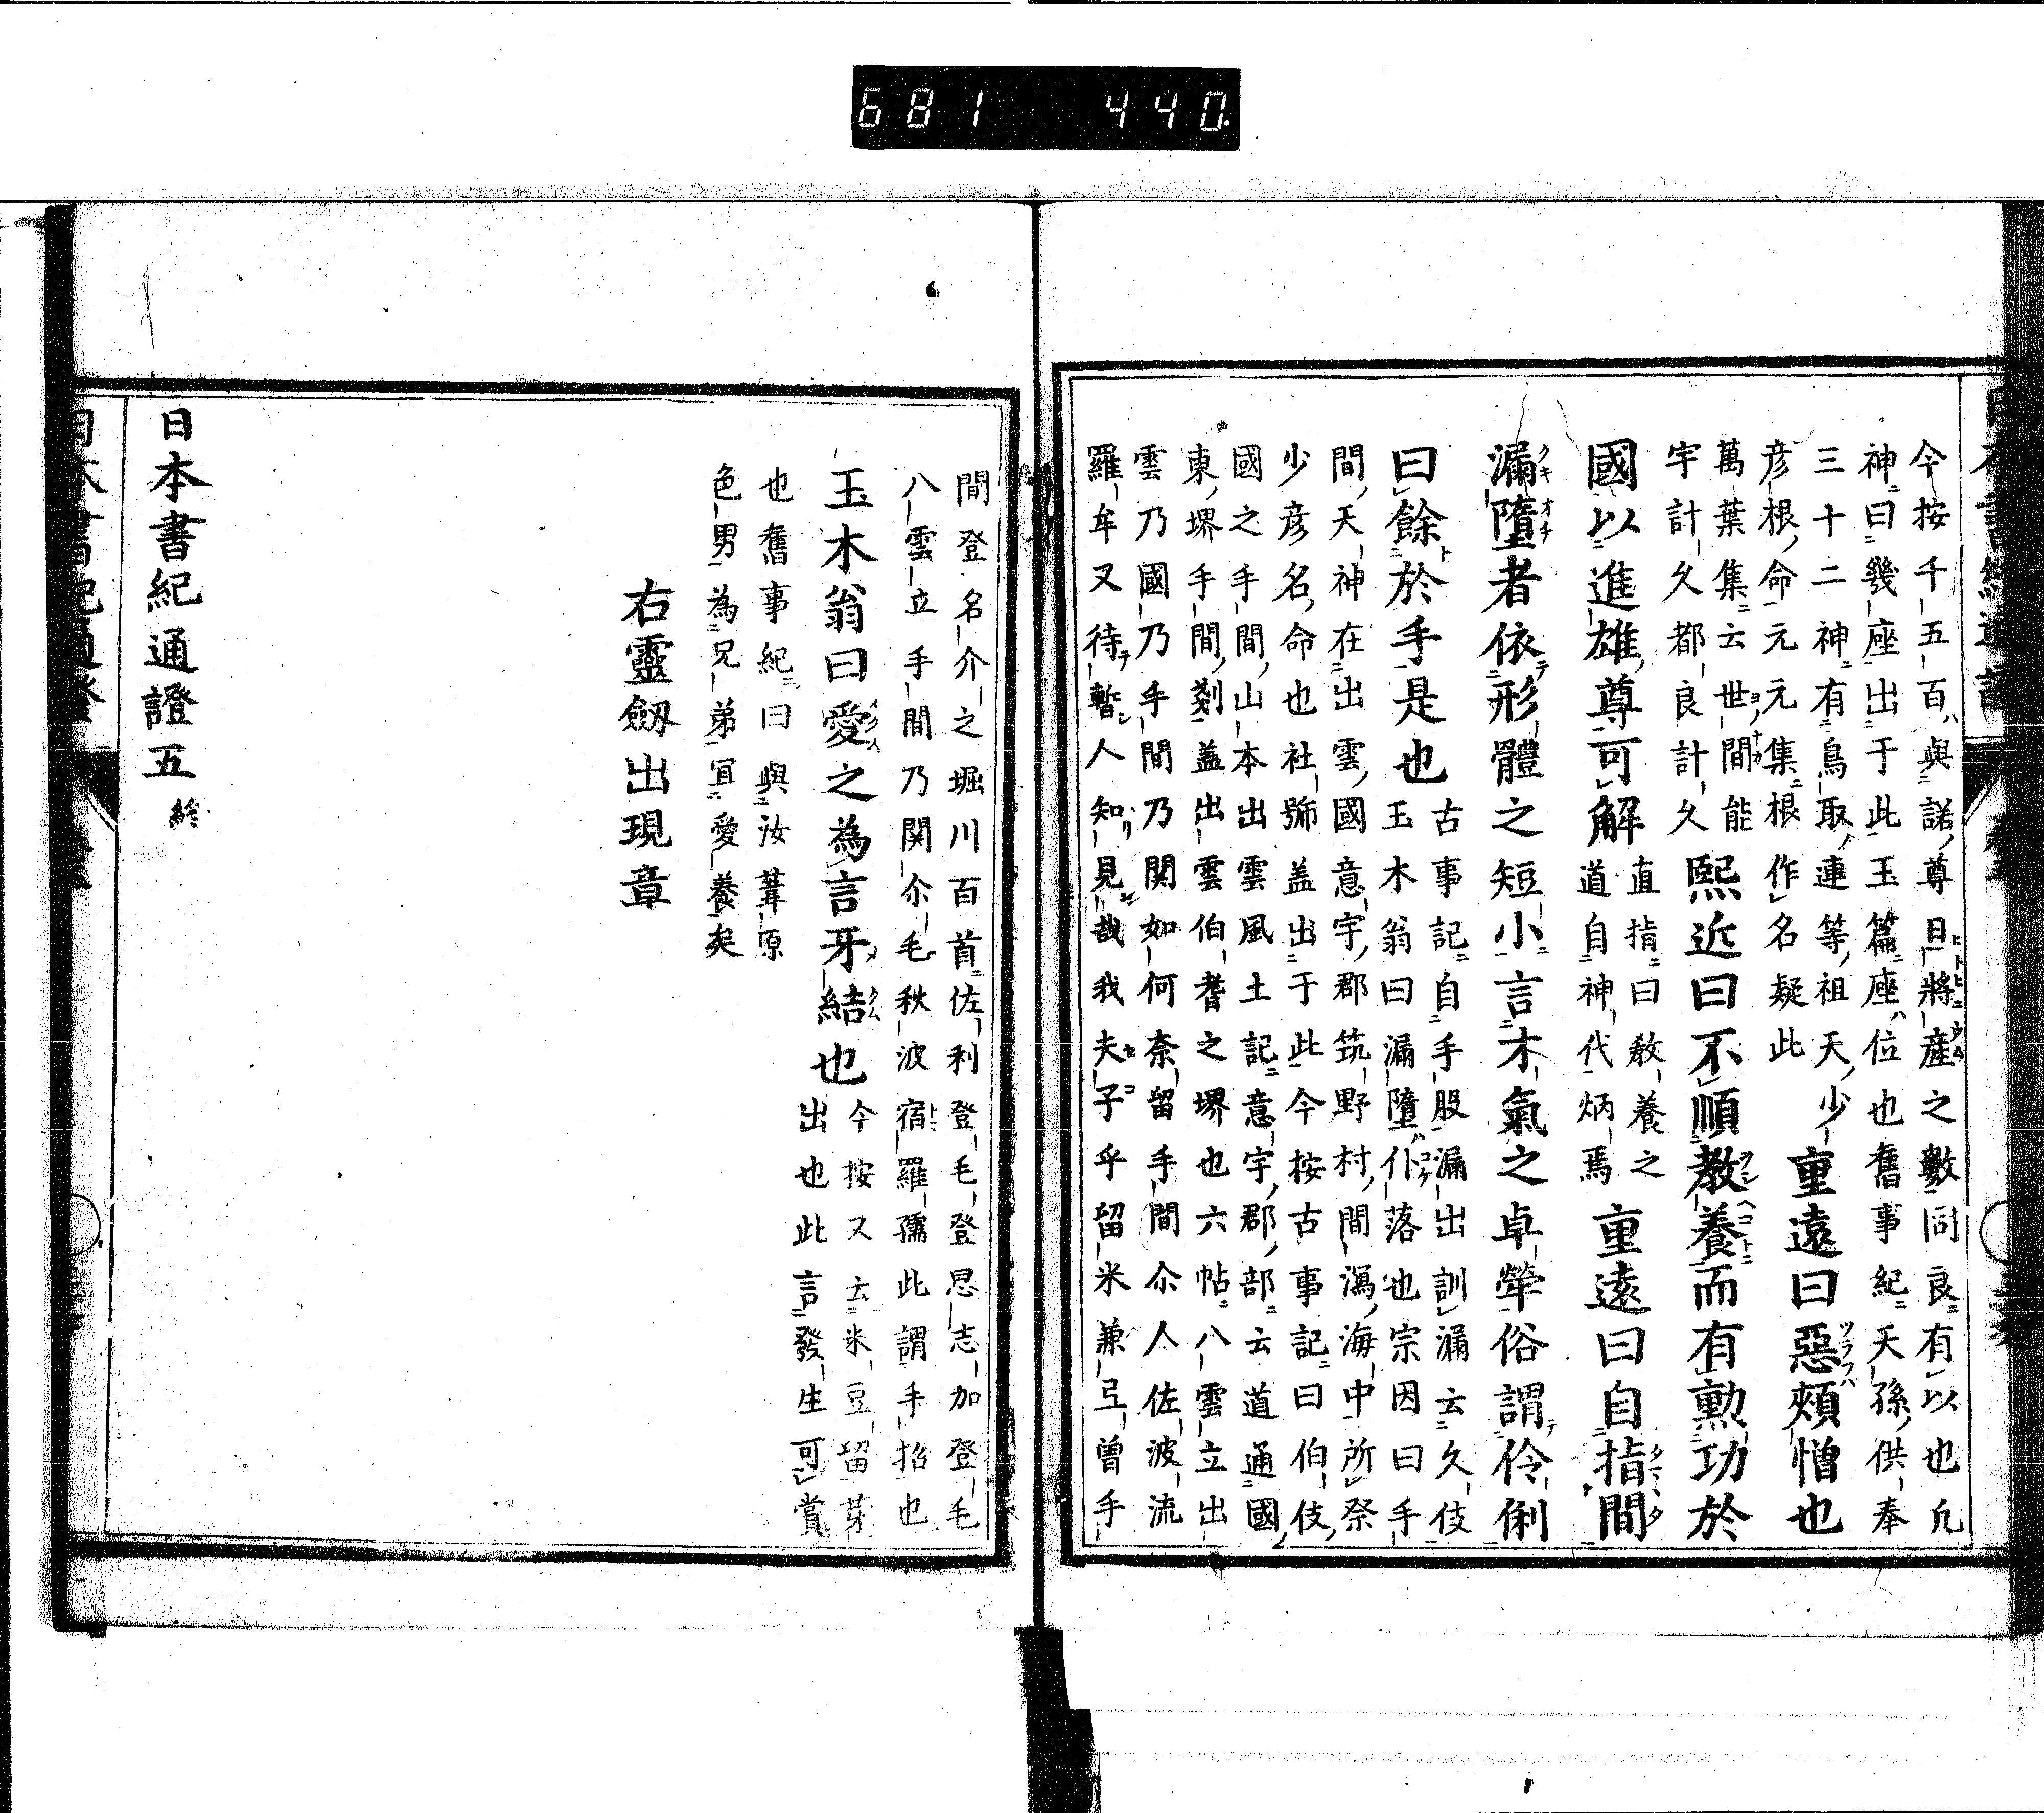 681 440
今按千五百與諾尊日將産之數同良有以也凡
神曰幾座出于此玉篇座位也舊事紀天孫供奉
三十二神有鳥取連等祖天少
彦根命元元集根作名疑此
重遠曰惡頰憎也
萬葉集云世間能
宇計久都良計久
熙近曰不順教養而有勲功於
國以進雄尊可解
直指曰教養之
道自神代炳焉
重遠曰自指間
漏墮者依形體之短小言木氣之卓犖俗謂伶俐
曰餘於手是也
古事記自手股漏出訓漏云久伎
玉木翁曰漏墮仆落也宗因曰手
間天神在出雲國意宇郡筑野村間潟海中所祭
少彦名命也社號盖出于此今按古事記曰伯伎
國之手間山本出雲風土記意宇郡部云道通國
東堺手間剗盖出雲伯耆之堺也六帖八雲立出
雲乃國乃手間乃関如何奈留手間尒人佐波流
羅牟又待暫人知見哉我夫子乎留米兼弖曽手
間登名介之堀川百首佐利登毛登思志加登毛
八雲立手間乃関尒毛秋波宿羅孺此謂手招也
玉木翁曰愛之為言牙結也
今按又云米豆留芽
出也此言發生可賞
也舊事紀曰與汝葦原
色男為兄弟宜愛養矣
右靈劔出現章
日本書紀通證五 終